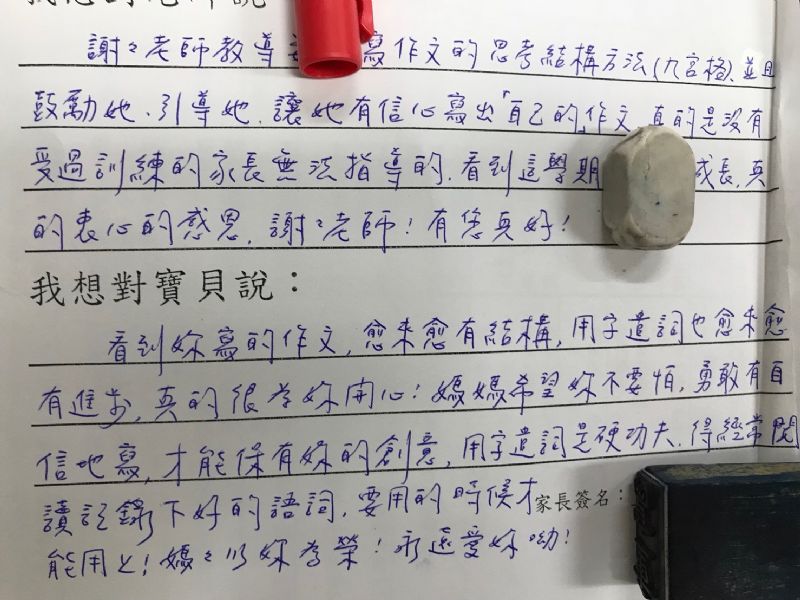 我想對老師說
謝々老師教導 寫作文的思考結構方法(九宮格)、並且
鼓勵她、引導她、讓她有信心寫出「自己的」作文、真的是沒有
受過訓練的家長無法指導的、看到這學期 成長,真
的衷心的感恩、謝々老師!有您真好!
我想對寶貝說:
看到妳寫的作文,愈來愈有結構,用字遣詞也愈來愈
有進步,真的很為妳開心!媽媽希望妳不要怕,勇敢有自
信地寫,才能保有妳的創意,用字遣詞是硬功夫、得經常閱
讀記錄下好的語詞,要用的時候才
家長簽名:
能用上!媽々以妳為榮!永遠愛妳呦!